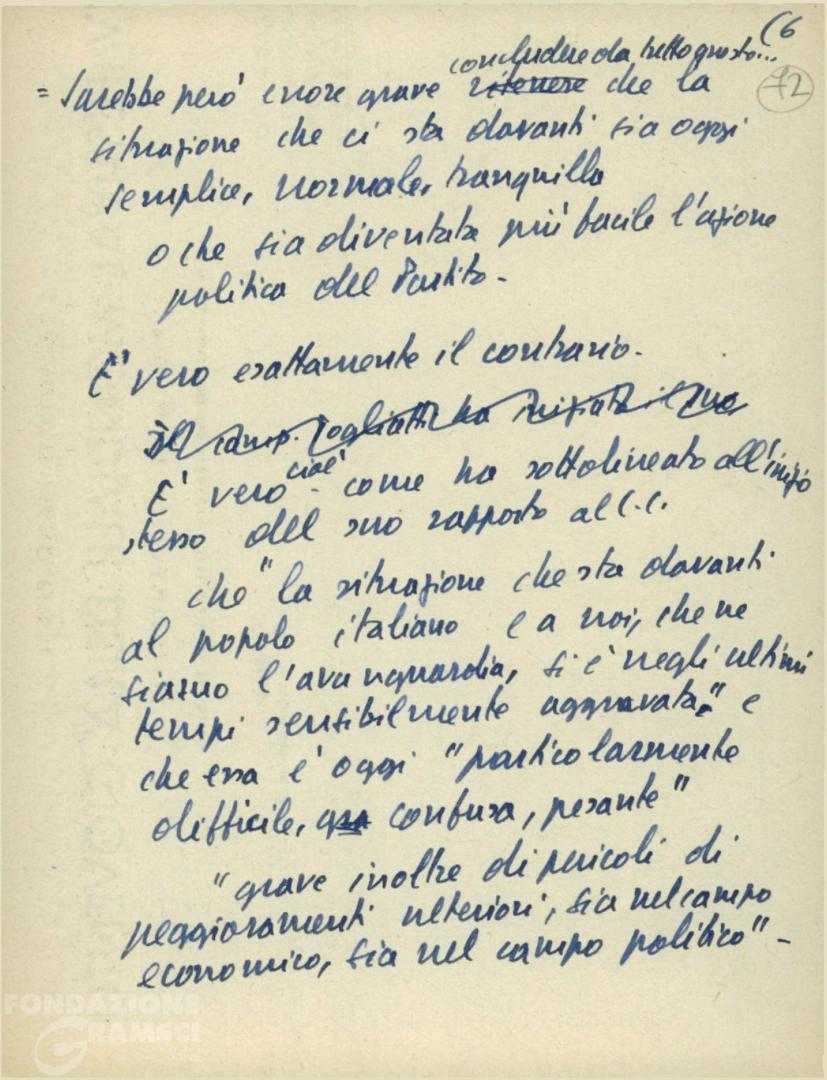 (6
72
concludere da tutto questo...
= Sarebbe però errore grave ritenere che la
situazione che ci sta davanti sia oggi
semplice, normale, tranquilla
o che sia diventata più facile l'azione
politica del Partito -
E' vero esattamente il contrario.
Il comp. Togliatti ha iniziato il suo
E' vero cioè - come ha sottolineato all'inizio
stesso del suo rapporto al C.C.
che "la situazione che sta davanti
al popolo italiano e a noi, che ne
siamo l'avanguardia, si è negli ultimi
tempi sensibilmente aggravata," e
che essa è oggi "particolarmente
difficile, confusa, pesante"
"grave inoltre di pericoli di
peggioramenti ulteriori, sia nel campo
economico, sia nel campo politico" -
FONDAZIONE
GRAMSCI